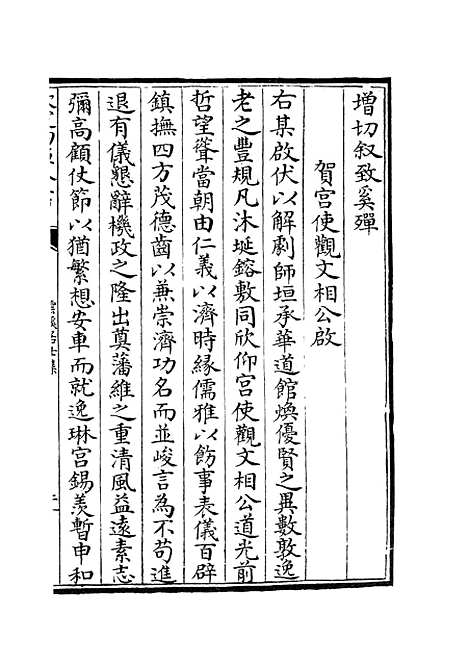 增切叙致奚殫
賀宫使觀文相公啟
右某啟伏以解劇師垣承華道館煥優賢之異數敦逸
老之豐規凡沐埏鎔敷同欣仰宫使觀文相公道光前
哲望聳當朝由仁義以濟時緣儒雅以飭事表儀百辟
鎮撫四方茂德齒以兼崇濟功名而並峻言為不苟進
退有儀懇辭機政之隆出奠藩維之重清風益遠素志
彌高顧仗節以猶繁想安車而就逸琳宫錫羨暫申和